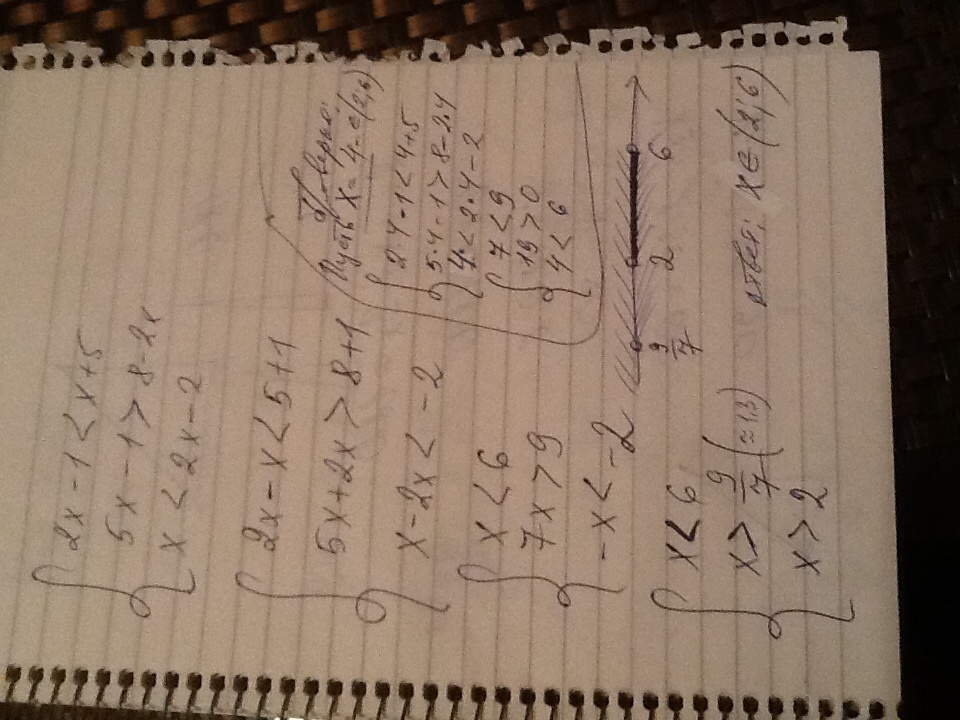 2x-1<x+5
5x-1>8-2x
x<2x-2
2x-x<5+1
5x+2x>8+1
x-2x<-2
x<6
7x>9
-x<-2
x<6
x>9/7(≈1,3)
x>2
Пусть x=4∈(2;6)
2·4-1<4+5
5·4-1>8-2·4
4<2·4-2
7<9
19>0
4<6
9/7 2 6
ответ: x∈(2;6)